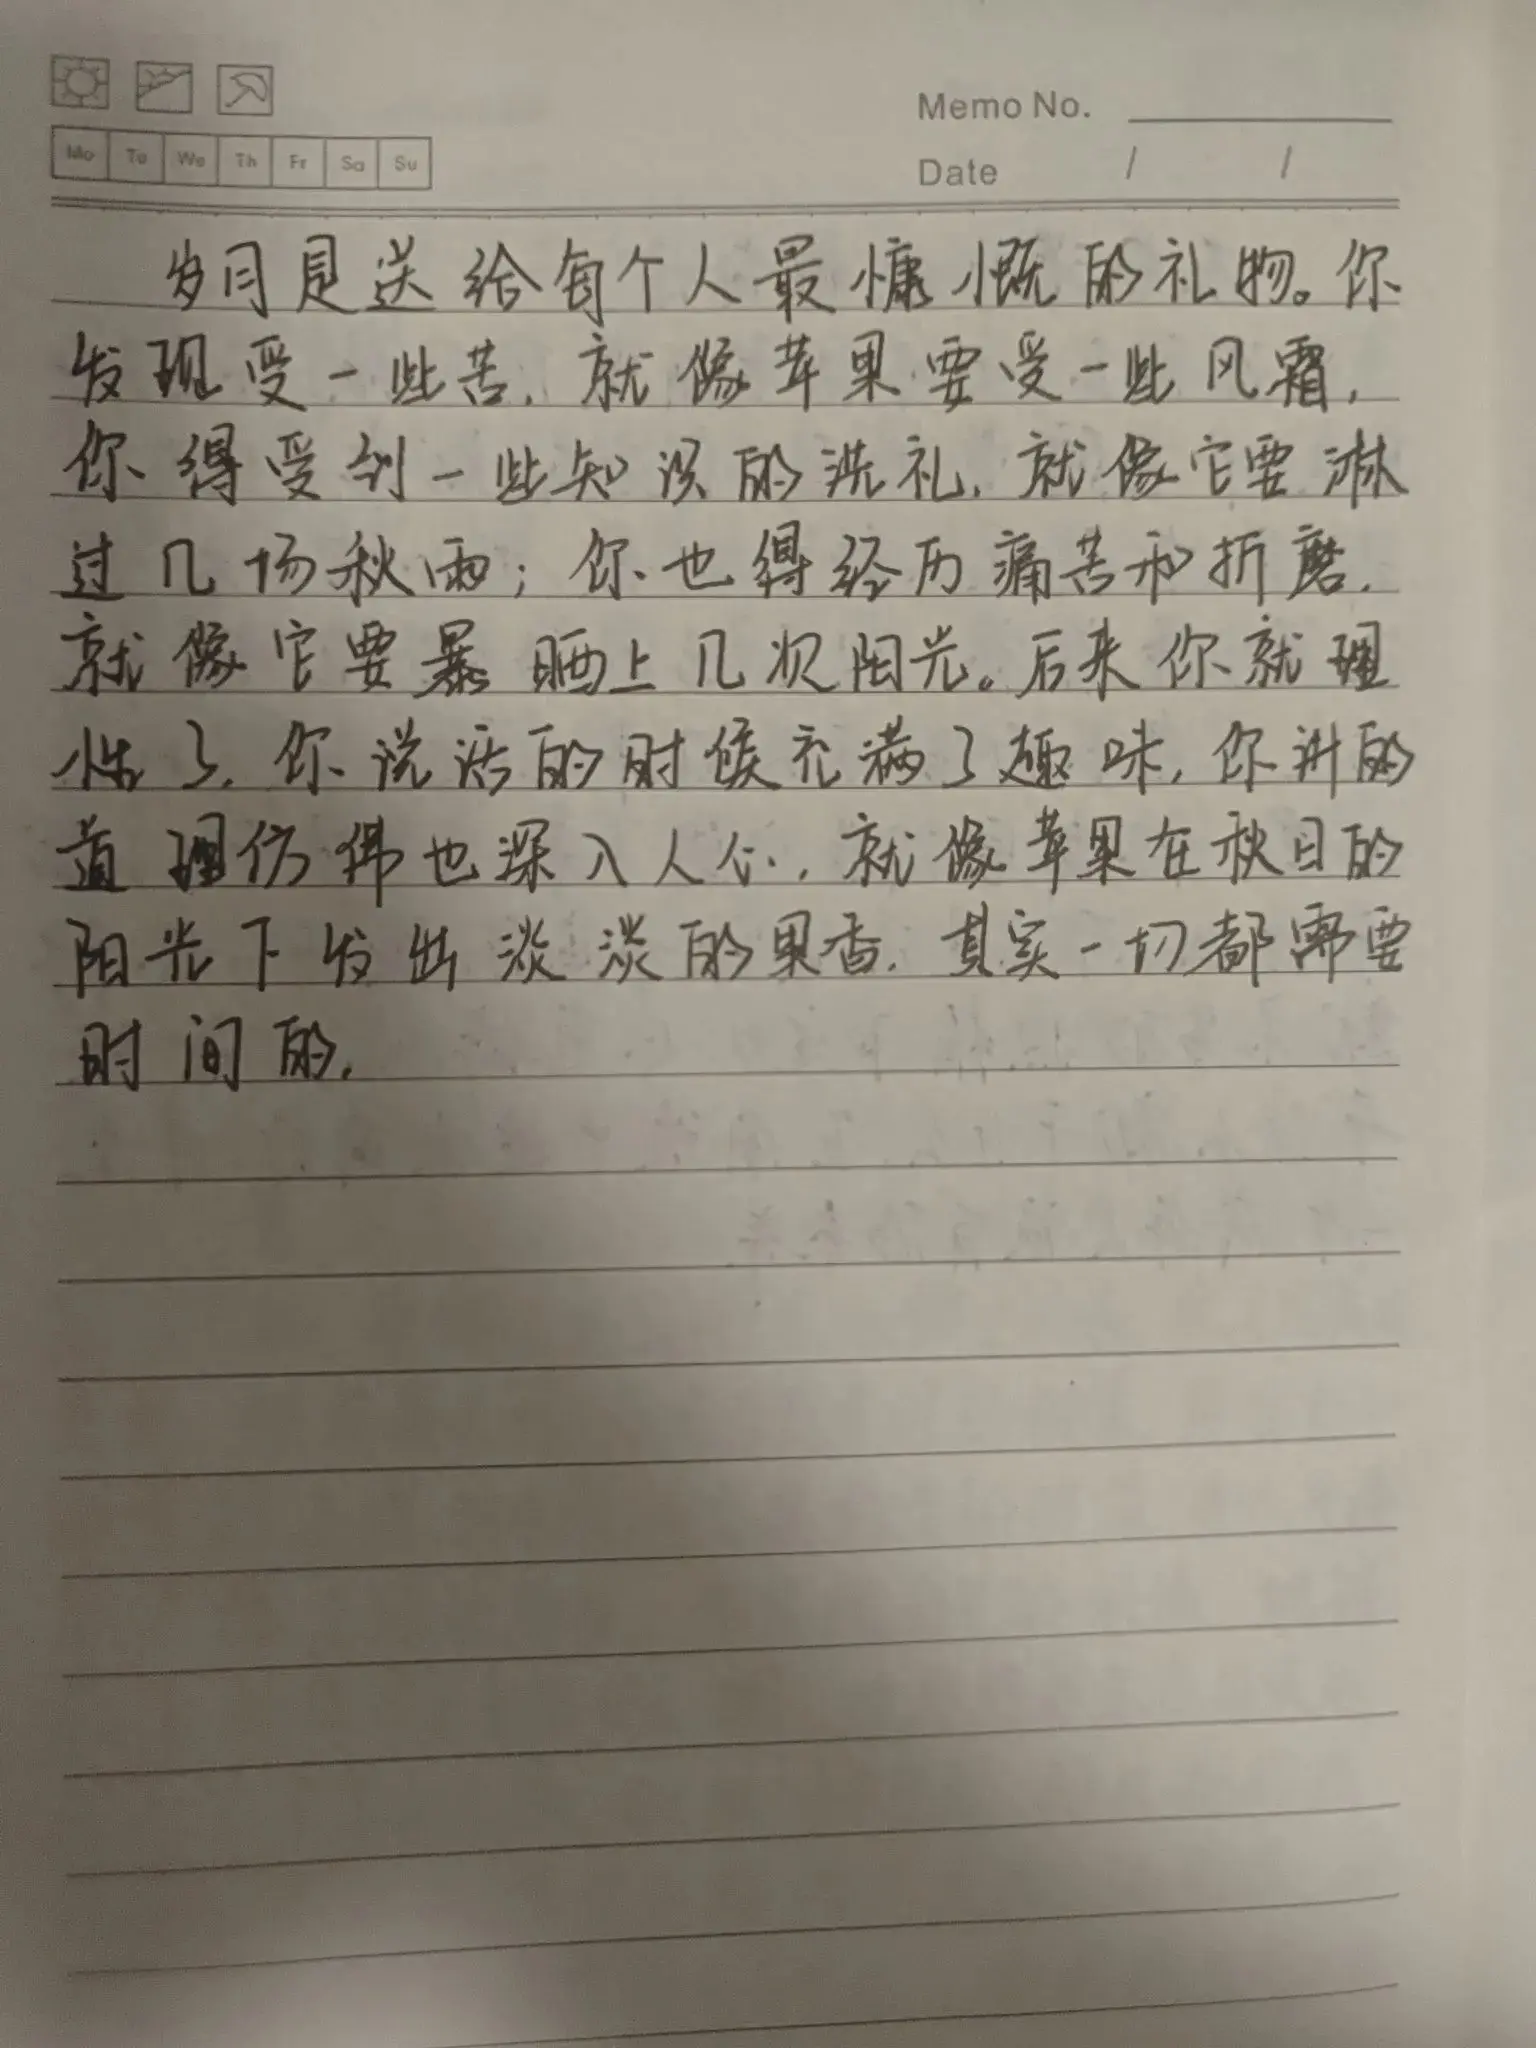 Memo No.
Mo Tu We Th Fr Sa Su
Date / /
岁月是送给每个人最慷慨的礼物。你
发现受一些苦，就像苹果要受一些风霜，
你得受到一些知识的洗礼，就像它要淋
过几场秋雨；你也得经历痛苦和折磨，
就像它要暴晒上几次阳光。后来你就理
性了，你说话的时候充满了趣味，你讲的
道理仿佛也深入人心，就像苹果在秋日的
阳光下发出淡淡的果香，其实一切都需要
时间的，